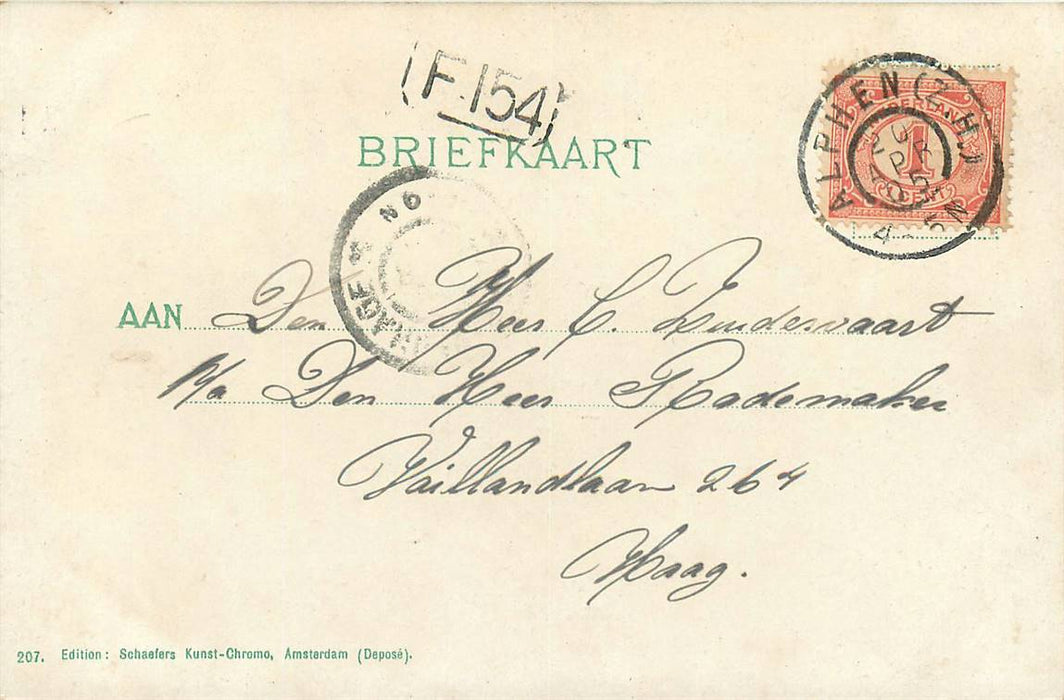 (F.154)
BRIEFKAART
ALPHEN (Z.H.)
4-5N
NEDERLAND
1
CENT
AAN Den Heer C. Zuiderwaart
p/a Den Heer Rademaker
Vaillandlaan 264
Haag.
207. Edition: Schaefers Kunst-Chromo, Amsterdam (Deposé).